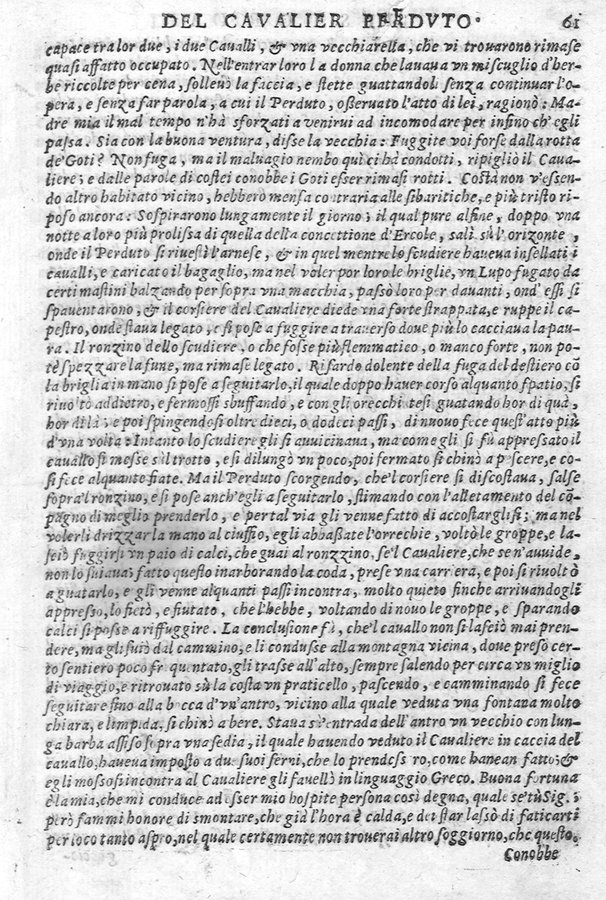 DEL CAVALIER PERDVTO. 61
capace tra lor due, i due Cavalli, & vna vecchiarella, che vi trouarono rimase
quasi affatto occupato. Nell'entrar loro la donna che lauaua vn miscuglio d'her-
be riccolte per cena, solleuò la faccia, e stette guattandoli senza continuar l'o-
pera, e senza far parola, a cui il Perduto, osseruato l'atto di lei, ragionò: Ma-
dre mia il mal tempo n'hà sforzati a venirui ad incomodare per infino ch'egli
passa. Sia con la buona ventura, disse la vecchia: Fuggite voi forse dalla rotta
de' Goti? Non fuga, ma il maluagio nembo quì ci hà condotti, ripigliò il Caua-
liere; e dalle parole di costei conobbe i Goti esser rimasi rotti. Costà non v'essen-
do altro habitato vicino, hebbero mensa contraria alle sibaritiche, e più tristo ri-
poso ancora: Sospirarono lungamente il giorno; il qual pure alfine, doppo vna
notte a loro più prolissa di quella della concettione d'Ercole, salì sù l'orizonte,
onde il Perduto si riuestì l'arnese, & in quel mentre lo scudiere haueua insellati i
caualli, e caricato il bagaglio, ma nel voler por loro le briglie, vn Lupo fugato da
certi mastini balzando per sopra vna macchia, passò loro per dauanti, ond'essi si
spauentarono, & il corsiere del Caualiere diede vna forte strappata, e ruppe il ca-
pestro, onde staua legato, e si pose a fuggire a trauerso doue più lo cacciaua la pau-
ra. Il ronzino dello scudiere, o che fosse più flemmatico, o manco forte, non po-
tè spezzare la fune, ma rimase legato. Rifardo dolente della fuga del destiero cō
la briglia in mano si pose a seguitarlo, il quale doppo hauer corso alquanto spatio, si
riuoltò addietro, e fermossi sbuffando, e con gli orecchi tesi guatando hor di quà,
hor di là; e poi spingendosi oltre dieci, o dodeci passi, di nuouo fece quest'atto più
d'vna volta: Intanto lo scudiere gli si auuicinaua, ma come gli si fù appressato il
cauallo si messe sù'l trotto, e si dilungò vn poco, poi fermato si chinò a pascere, e co-
sì fece alquante fiate. Ma il Perduto scorgendo, che'l corsiere si discostaua, salse
sopra'l ronzino, e si pose anch'egli a seguitarlo, stimando con l'alletamento del cō-
pagno di meglio prenderlo, e per tal via gli venne fatto di accostarglisi; ma nel
volerli drizzar la mano al ciuffo, egli abbassate l'orrechie, voltò le groppe, e la-
sciò fuggirsi vn paio di calci, che guai al ronzzino, se'l Caualiere, che se n'auuide,
non lo suiaua: fatto questo inarborando la coda, prese vna carriera, e poi si riuoltò
a guatarlo, e gli venne alquanti passi incontra, molto quieto finche arriuandogli
appresso, lo fietò, e fiutato, che l'hebbe, voltando di nouo le groppe, e sparando
calci si posse a riffuggire. La conclusione fù, che'l cauallo non si lasciò mai pren-
dere, ma gli suiò dal cammino, e li condusse alla montagna vicina, doue preso cer-
to sentiero poco frequentato, gli trasse all'alto, sempre salendo per circa vn miglio
di viaggio, e ritrouato sù la costa vn praticello, pascendo, e camminando si fece
seguitare fino alla bocca d'vn'antro, vicino alla quale veduta vna fontana molto
chiara, e limpida, si chinò a bere. Staua sù l'entrada dell'antro vn vecchio con lun-
ga barba assiso sopra vna sedia, il quale hauendo veduto il Caualiere in caccia del
cauallo, haueua imposto a due suoi serui, che lo prendessero, come hauean fatto; &
egli mossosi incontra al Caualiere gli fauellò in linguaggio Greco. Buona fortuna
è la mia, che mi conduce ad esser mio hospite persona così degna, quale se' tù Sig. ;
però fammi honore di smontare, che già l'hora è calda, e dei star lasso di faticarti
per loco tanto aspro, nel quale certamente non trouerai altro soggiorno, che questo.
Conobbe